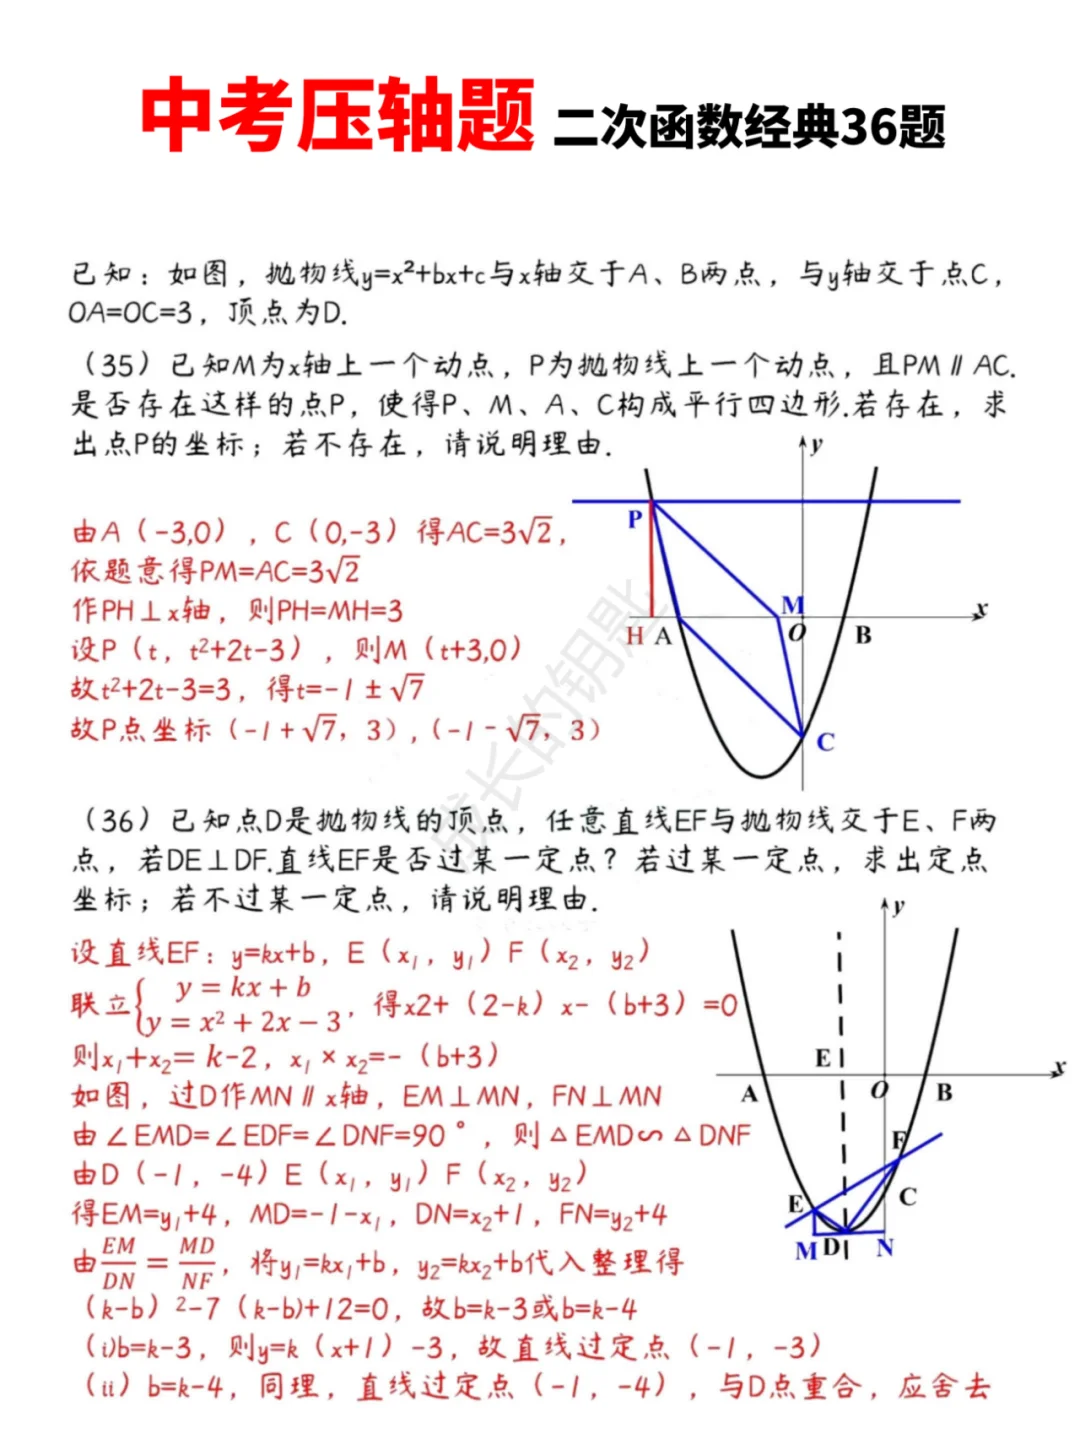 中考压轴题 二次函数经典36题
已知：如图，抛物线y=x²+bx+c与x轴交于A、B两点，与y轴交于点C，
OA=OC=3，顶点为D.
（35）已知M为x轴上一个动点，P为抛物线上一个动点，且PM∥AC.
是否存在这样的点P，使得P、M、A、C构成平行四边形.若存在，求
出点P的坐标；若不存在，请说明理由.
y
P
M
x
H A O B
C
由A（-3,0），C（0,-3）得AC=3√2，
依题意得PM=AC=3√2
作PH⊥x轴，则PH=MH=3
设P（t，t²+2t-3），则M（t+3,0）
故t²+2t-3=3，得t=-1±√7
故P点坐标（-1+√7，3）,（-1-√7，3）
成长的钥匙
（36）已知点D是抛物线的顶点，任意直线EF与抛物线交于E、F两
点，若DE⊥DF.直线EF是否过某一定点？若过某一定点，求出定点
坐标；若不过某一定点，请说明理由.
设直线EF：y=kx+b，E（x₁，y₁）F（x₂，y₂）
联立{y = kx + b
y = x² + 2x − 3，得x2+（2-k）x-（b+3）=0
则x₁+x₂= k-2，x₁×x₂=-（b+3）
如图，过D作MN∥x轴，EM⊥MN，FN⊥MN
由∠EMD=∠EDF=∠DNF=90°，则△EMD∽△DNF
由D（-1，-4）E（x₁，y₁）F（x₂，y₂）
得EM=y₁+4，MD=-1-x₁，DN=x₂+1，FN=y₂+4
由EM/DN=MD/NF，将y₁=kx₁+b，y₂=kx₂+b代入整理得
（k-b）²-7（k-b)+12=0，故b=k-3或b=k-4
（i)b=k-3，则y=k（x+1）-3，故直线过定点（-1，-3）
（ii）b=k-4，同理，直线过定点（-1，-4），与D点重合，应舍去
y
E
x
A O B
F
E C
M D N